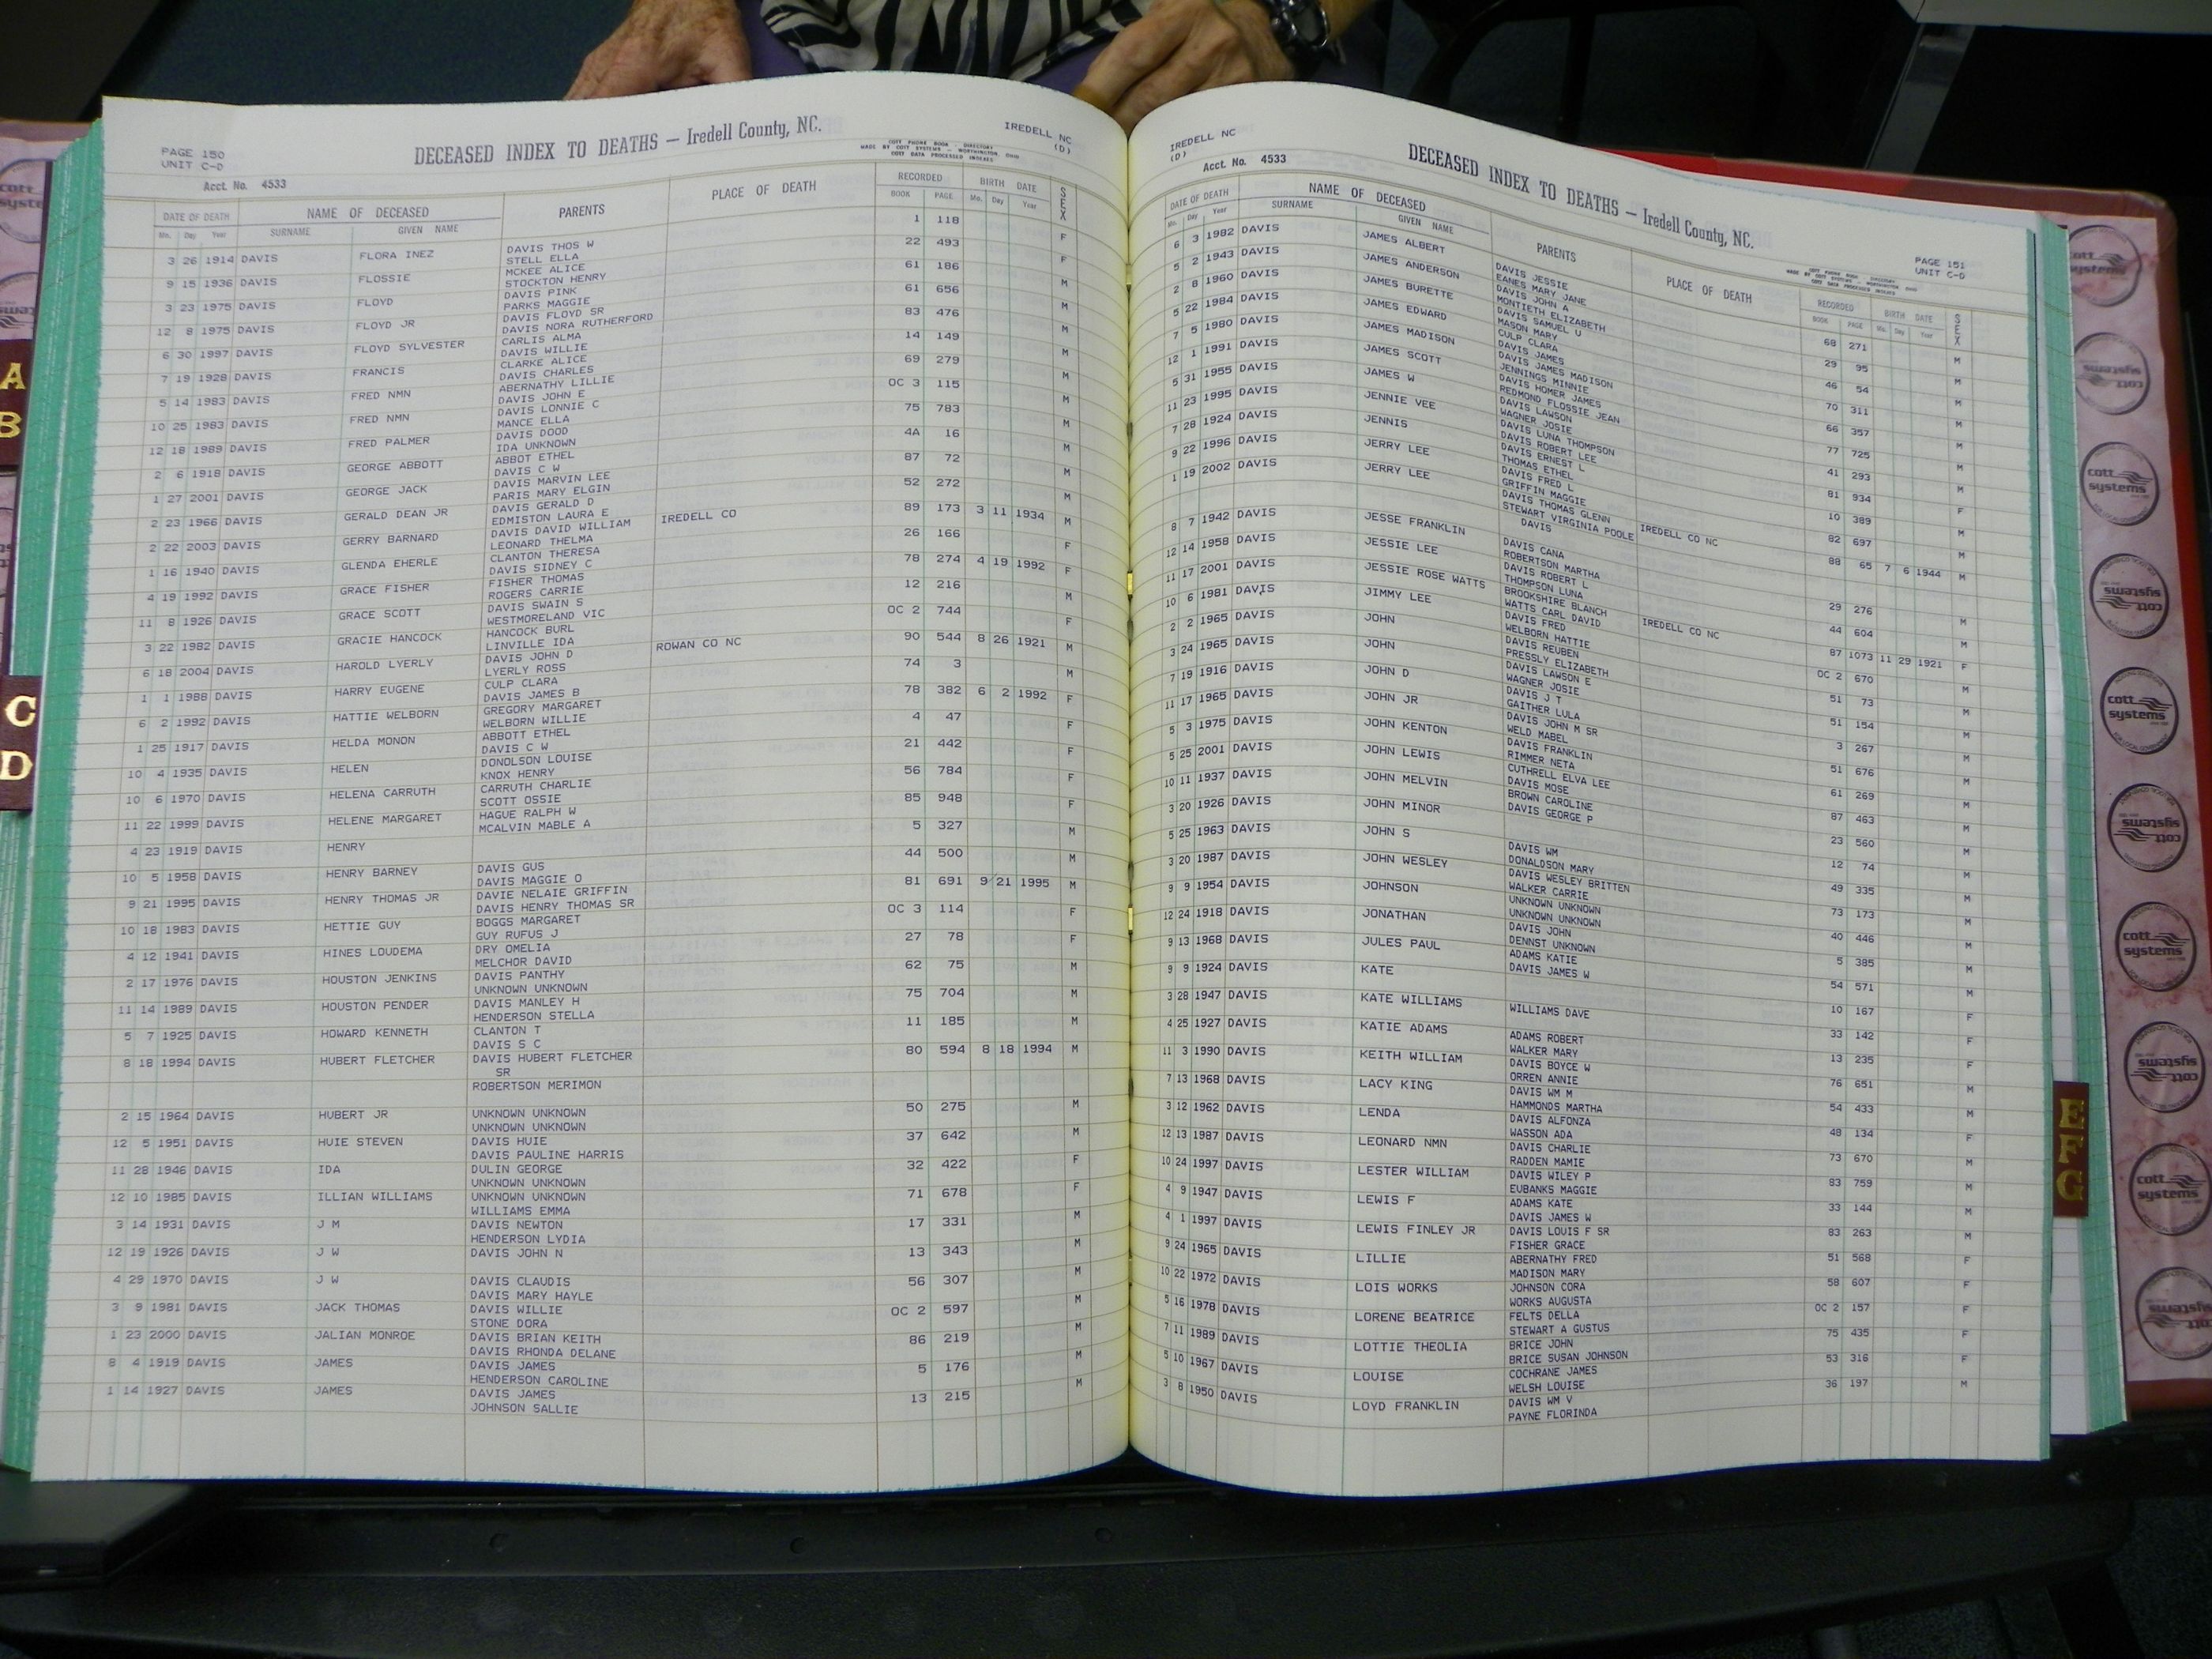 PAGE 150
UNIT C-D
DECEASED INDEX TO DEATHS — Iredell County, NC.
IREDELL NC
(D)
COTT PHONE BOOK - DIRECTORY
MADE BY COTT SYSTEMS - WORTHINGTON, OHIO
COTT DATA PROCESSED INDEXES
Acct. No. 4533
DATE OF DEATH NAME OF DECEASED PARENTS PLACE OF DEATH RECORDED BIRTH DATE SEX
Mo. Day Year SURNAME GIVEN NAME BOOK PAGE Mo. Day Year
3 26 1914 DAVIS FLORA INEZ DAVIS THOS W 1 118 F
STELL ELLA
9 15 1936 DAVIS FLOSSIE MCKEE ALICE 22 493 F
STOCKTON HENRY
3 23 1975 DAVIS FLOYD DAVIS PINK 61 186 M
PARKS MAGGIE
12 8 1975 DAVIS FLOYD JR DAVIS FLOYD SR 61 656 M
DAVIS NORA RUTHERFORD
6 30 1997 DAVIS FLOYD SYLVESTER CARLIS ALMA 83 476 M
DAVIS WILLIE
7 19 1928 DAVIS FRANCIS CLARKE ALICE 14 149 M
DAVIS CHARLES
5 14 1983 DAVIS FRED NMN ABERNATHY LILLIE 69 279 M
DAVIS JOHN E
10 25 1983 DAVIS FRED NMN DAVIS LONNIE C OC 3 115 M
MANCE ELLA
12 18 1989 DAVIS FRED PALMER DAVIS DOOD 75 783 M
IDA UNKNOWN
2 6 1918 DAVIS GEORGE ABBOTT ABBOT ETHEL 4A 16 M
DAVIS C W
1 27 2001 DAVIS GEORGE JACK DAVIS MARVIN LEE 87 72 M
PARIS MARY ELGIN
2 23 1966 DAVIS GERALD DEAN JR DAVIS GERALD D 52 272 M
EDMISTON LAURA E
2 22 2003 DAVIS GERRY BARNARD DAVIS DAVID WILLIAM IREDELL CO 89 173 3 11 1934 M
LEONARD THELMA
1 16 1940 DAVIS GLENDA EHERLE CLANTON THERESA 26 166 F
DAVIS SIDNEY C
4 19 1992 DAVIS GRACE FISHER FISHER THOMAS 78 274 4 19 1992 F
ROGERS CARRIE
11 8 1926 DAVIS GRACE SCOTT DAVIS SWAIN S 12 216 M
WESTMORELAND VIC
3 22 1982 DAVIS GRACIE HANCOCK HANCOCK BURL OC 2 744 F
LINVILLE IDA
6 18 2004 DAVIS HAROLD LYERLY DAVIS JOHN D ROWAN CO NC 90 544 8 26 1921 M
LYERLY ROSS
1 1 1988 DAVIS HARRY EUGENE CULP CLARA 74 3 M
DAVIS JAMES B
6 2 1992 DAVIS HATTIE WELBORN GREGORY MARGARET 78 382 6 2 1992 F
WELBORN WILLIE
1 25 1917 DAVIS HELDA MONON ABBOTT ETHEL 4 47 F
DAVIS C W
10 4 1935 DAVIS HELEN DONOLSON LOUISE 21 442 F
KNOX HENRY
10 6 1970 DAVIS HELENA CARRUTH CARRUTH CHARLIE 56 784 F
SCOTT OSSIE
11 22 1999 DAVIS HELENE MARGARET HAGUE RALPH W 85 948 F
MCALVIN MABLE A
4 23 1919 DAVIS HENRY 5 327 M
10 5 1958 DAVIS HENRY BARNEY DAVIS GUS 44 500 M
DAVIS MAGGIE O
9 21 1995 DAVIS HENRY THOMAS JR DAVIE NELAIE GRIFFIN 81 691 9 21 1995 M
DAVIS HENRY THOMAS SR
10 18 1983 DAVIS HETTIE GUY BOGGS MARGARET OC 3 114 F
GUY RUFUS J
4 12 1941 DAVIS HINES LOUDEMA DRY OMELIA 27 78 F
MELCHOR DAVID
2 17 1976 DAVIS HOUSTON JENKINS DAVIS PANTHY 62 75 M
UNKNOWN UNKNOWN
11 14 1989 DAVIS HOUSTON PENDER DAVIS MANLEY H 75 704 M
HENDERSON STELLA
5 7 1925 DAVIS HOWARD KENNETH CLANTON T 11 185 M
DAVIS S C
8 18 1994 DAVIS HUBERT FLETCHER DAVIS HUBERT FLETCHER 80 594 8 18 1994 M
SR
ROBERTSON MERIMON
2 15 1964 DAVIS HUBERT JR UNKNOWN UNKNOWN 50 275 M
UNKNOWN UNKNOWN
12 5 1951 DAVIS HUIE STEVEN DAVIS HUIE 37 642 M
DAVIS PAULINE HARRIS
11 28 1946 DAVIS IDA DULIN GEORGE 32 422 F
UNKNOWN UNKNOWN
12 10 1985 DAVIS ILLIAN WILLIAMS UNKNOWN UNKNOWN 71 678 F
WILLIAMS EMMA
3 14 1931 DAVIS J M DAVIS NEWTON 17 331 M
HENDERSON LYDIA
12 19 1926 DAVIS J W DAVIS JOHN N 13 343 M
4 29 1970 DAVIS J W DAVIS CLAUDIS 56 307 M
DAVIS MARY HAYLE
3 9 1981 DAVIS JACK THOMAS DAVIS WILLIE OC 2 597 M
STONE DORA
1 23 2000 DAVIS JALIAN MONROE DAVIS BRIAN KEITH 86 219 M
DAVIS RHONDA DELANE
8 4 1919 DAVIS JAMES DAVIS JAMES 5 176 M
HENDERSON CAROLINE
1 14 1927 DAVIS JAMES DAVIS JAMES 13 215 M
JOHNSON SALLIE
IREDELL NC
(D)
DECEASED INDEX TO DEATHS — Iredell County, NC.
PAGE 151
UNIT C-D
Acct. No. 4533
COTT PHONE BOOK - DIRECTORY
MADE BY COTT SYSTEMS - WORTHINGTON, OHIO
COTT DATA PROCESSED INDEXES
DATE OF DEATH NAME OF DECEASED PARENTS PLACE OF DEATH RECORDED BIRTH DATE SEX
Mo. Day Year SURNAME GIVEN NAME BOOK PAGE Mo. Day Year
6 3 1982 DAVIS JAMES ALBERT DAVIS JESSIE 68 271 M
EANES MARY JANE
5 2 1943 DAVIS JAMES ANDERSON DAVIS JOHN A 29 95 M
MONTIETH ELIZABETH
2 8 1960 DAVIS JAMES BURETTE DAVIS SAMUEL U 46 54 M
MASON MARY
5 22 1984 DAVIS JAMES EDWARD CULP CLARA 70 311 M
DAVIS JAMES
7 5 1980 DAVIS JAMES MADISON DAVIS JAMES MADISON 66 357 M
JENNINGS MINNIE
12 1 1991 DAVIS JAMES SCOTT DAVIS HOMER JAMES 77 725 M
REDMOND FLOSSIE JEAN
5 31 1955 DAVIS JAMES W DAVIS LAWSON 41 293 M
WAGNER JOSIE
11 23 1995 DAVIS JENNIE VEE DAVIS LUNA THOMPSON 81 934 F
DAVIS ROBERT LEE
7 28 1924 DAVIS JENNIS DAVIS ERNEST L 10 389 M
THOMAS ETHEL
9 22 1996 DAVIS JERRY LEE DAVIS FRED L 82 697 M
GRIFFIN MAGGIE
1 19 2002 DAVIS JERRY LEE DAVIS THOMAS GLENN IREDELL CO NC 88 65 7 6 1944 M
STEWART VIRGINIA POOLE
DAVIS
8 7 1942 DAVIS JESSE FRANKLIN DAVIS CANA 29 276 M
ROBERTSON MARTHA
12 14 1958 DAVIS JESSIE LEE DAVIS ROBERT L 44 604 M
THOMPSON LUNA
11 17 2001 DAVIS JESSIE ROSE WATTS BROOKSHIRE BLANCH IREDELL CO NC 87 1073 11 29 1921 F
WATTS CARL DAVID
10 6 1981 DAVIS JIMMY LEE DAVIS FRED OC 2 670 M
WELBORN HATTIE
2 2 1965 DAVIS JOHN DAVIS REUBEN 51 73 M
PRESSLY ELIZABETH
3 24 1965 DAVIS JOHN DAVIS LAWSON E 51 154 M
WAGNER JOSIE
7 19 1916 DAVIS JOHN D DAVIS J T 3 267 M
GAITHER LULA
11 17 1965 DAVIS JOHN JR DAVIS JOHN M SR 51 676 M
WELD MABEL
5 3 1975 DAVIS JOHN KENTON DAVIS FRANKLIN 61 269 M
RIMMER NETA
5 25 2001 DAVIS JOHN LEWIS CUTHRELL ELVA LEE 87 463 M
DAVIS MOSE
10 11 1937 DAVIS JOHN MELVIN BROWN CAROLINE 23 560 M
DAVIS GEORGE P
3 20 1926 DAVIS JOHN MINOR 12 74 M
5 25 1963 DAVIS JOHN S DAVIS WM 49 335 M
DONALDSON MARY
3 20 1987 DAVIS JOHN WESLEY DAVIS WESLEY BRITTEN 73 173 M
WALKER CARRIE
9 9 1954 DAVIS JOHNSON UNKNOWN UNKNOWN 40 446 M
UNKNOWN UNKNOWN
12 24 1918 DAVIS JONATHAN DAVIS JOHN 5 385 M
DENNST UNKNOWN
9 13 1968 DAVIS JULES PAUL ADAMS KATIE 54 571 M
DAVIS JAMES W
9 9 1924 DAVIS KATE 10 167 F
3 28 1947 DAVIS KATE WILLIAMS WILLIAMS DAVE 33 142 F
4 25 1927 DAVIS KATIE ADAMS ADAMS ROBERT 13 235 F
WALKER MARY
11 3 1990 DAVIS KEITH WILLIAM DAVIS BOYCE W 76 651 M
ORREN ANNIE
7 13 1968 DAVIS LACY KING DAVIS WM M 54 433 M
HAMMONDS MARTHA
3 12 1962 DAVIS LENDA DAVIS ALFONZA 48 134 F
WASSON ADA
12 13 1987 DAVIS LEONARD NMN DAVIS CHARLIE 73 670 M
RADDEN MAMIE
10 24 1997 DAVIS LESTER WILLIAM DAVIS WILEY P 83 759 M
EUBANKS MAGGIE
4 9 1947 DAVIS LEWIS F ADAMS KATE 33 144 M
DAVIS JAMES W
4 1 1997 DAVIS LEWIS FINLEY JR DAVIS LOUIS F SR 83 263 M
FISHER GRACE
9 24 1965 DAVIS LILLIE ABERNATHY FRED 51 568 F
MADISON MARY
10 22 1972 DAVIS LOIS WORKS JOHNSON CORA 58 607 F
WORKS AUGUSTA
5 16 1978 DAVIS LORENE BEATRICE FELTS DELLA OC 2 157 F
STEWART A GUSTUS
7 11 1989 DAVIS LOTTIE THEOLIA BRICE JOHN 75 435 F
BRICE SUSAN JOHNSON
5 10 1967 DAVIS LOUISE COCHRANE JAMES 53 316 F
WELSH LOUISE
3 8 1950 DAVIS LOYD FRANKLIN DAVIS WM V 36 197 M
PAYNE FLORINDA
A
B
C
D
E
F
G
cott systems
cott systems
cott systems
cott systems
cott systems